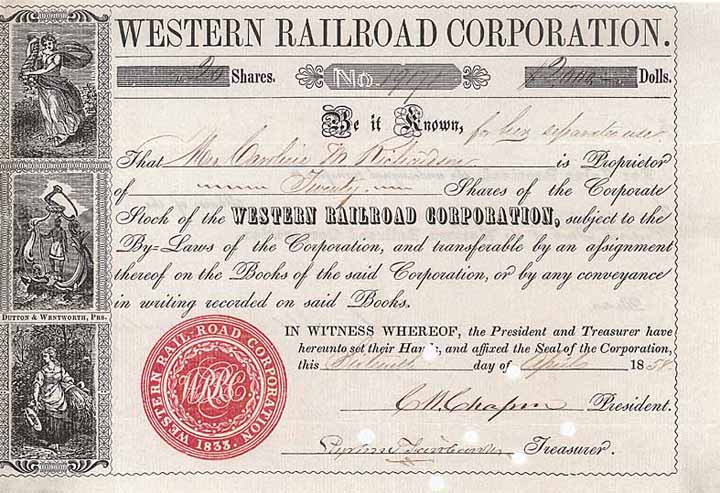 WESTERN RAILROAD CORPORATION.
20 Shares. No. 1917 $2000 Dolls.
Be it Known, for her separate use
That Mrs Caroline M Richardson is Proprietor
of Twenty Shares of the Corporate
Stock of the WESTERN RAILROAD CORPORATION, subject to the
By=Laws of the Corporation, and transferable by an assignment
thereof on the Books of the said Corporation, or by any conveyance
in writing recorded on said Books.
DUTTON & WENTWORTH, PRS.
IN WITNESS WHEREOF, the President and Treasurer have
hereunto set their Hands, and affixed the Seal of the Corporation,
this day of April 185
WESTERN RAIL-ROAD CORPORATION
WRRC
1833.
C W Chapin President.
Treasurer.